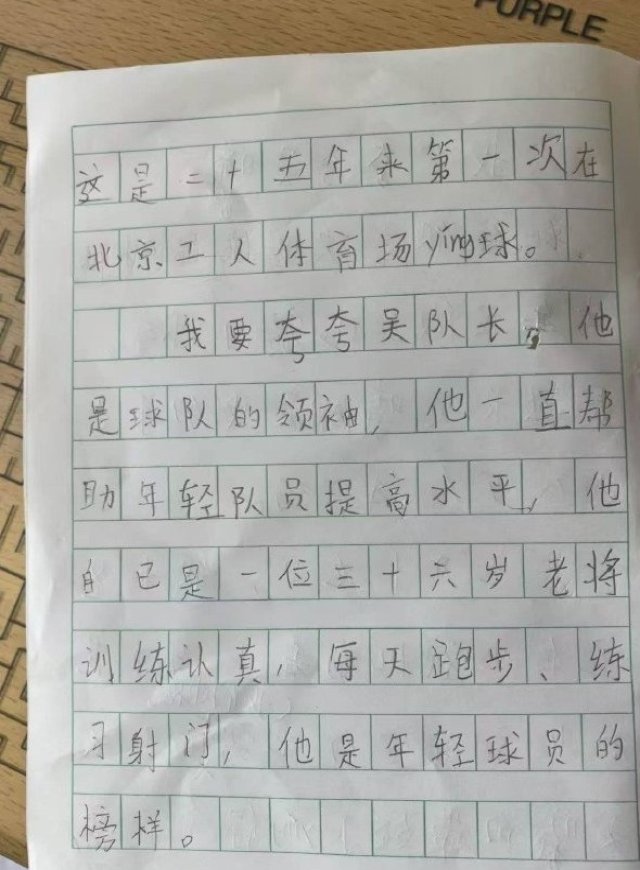 PURPLE
这是二十五年来第一次在
北京工人体育场yíng球。
我要夸夸吴队长，他
是球队的领袖，他一直帮
助年轻队员提高水平，他
自己是一位三十六岁老将
训练认真，每天跑步、练
习射门，他是年轻球员的
榜样。